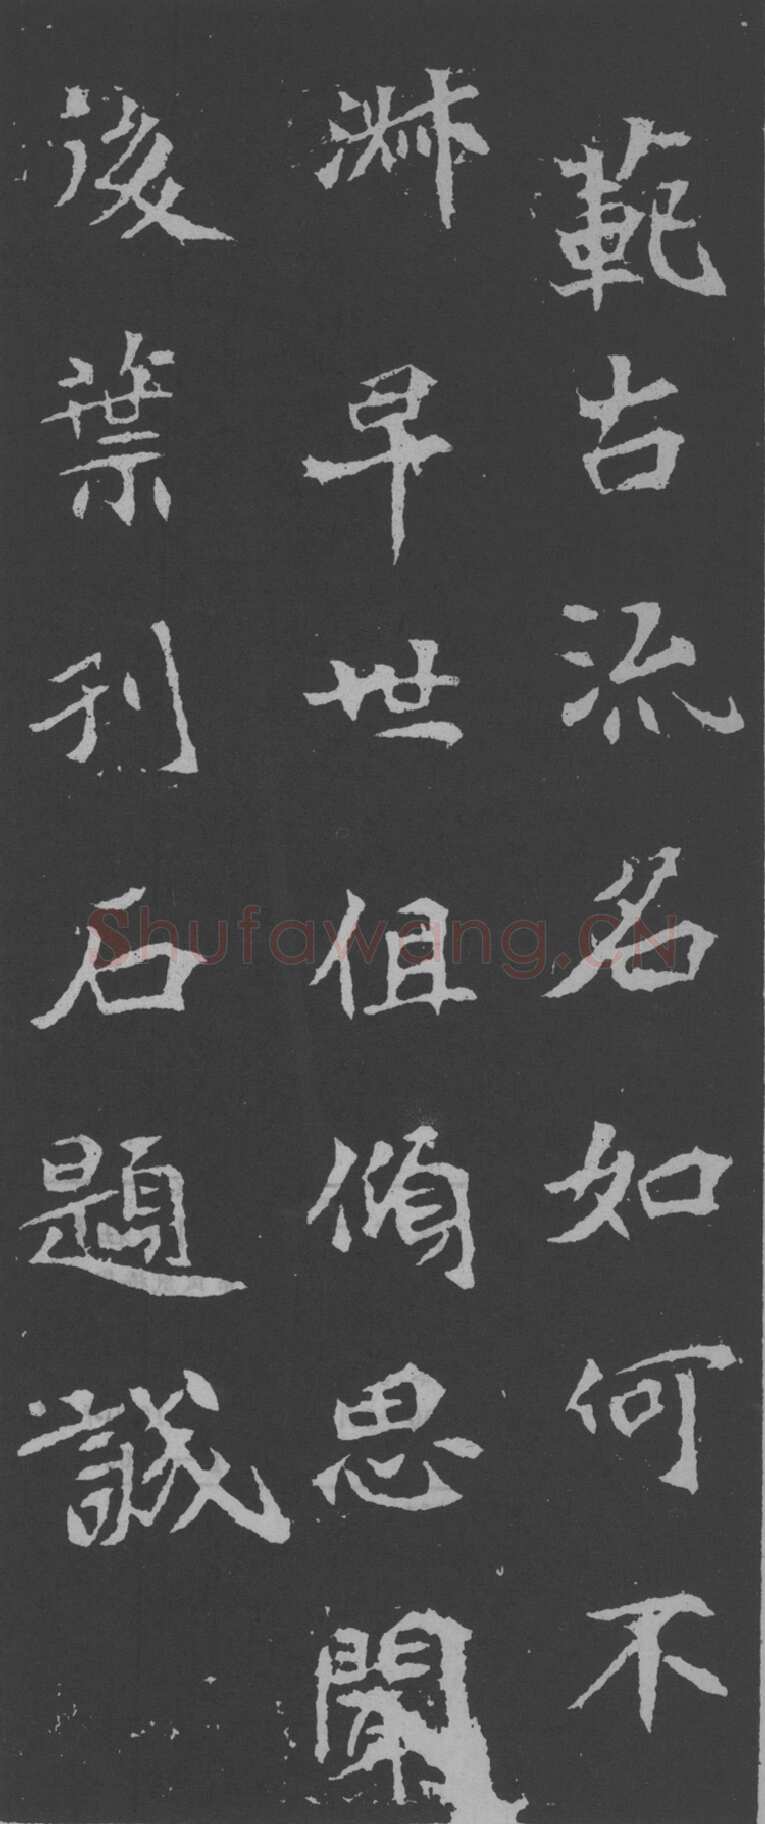 範古流名如何不
淋早世徂傾思聞
後葉刊石題誠
Shufawang.CN